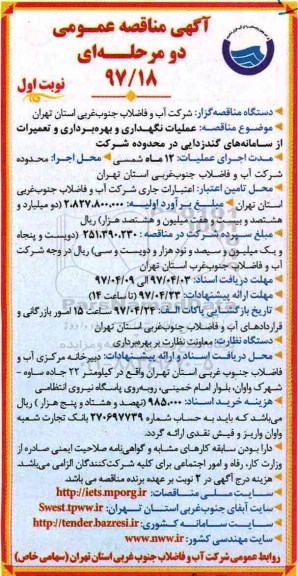 آگهی مناقصه عمومی
دو مرحله‌ای
۹۷/۱۸
نوبت اول
دستگاه مناقصه‌گزار: شرکت آب و فاضلاب جنوب‌غربی استان تهران
موضوع مناقصه: عملیات نگهداری و بهره‌برداری و تعمیرات
از سامانه‌های گندزدایی در محدوده شرکت
مدت اجرای عملیات: ۱۲ ماه شمسی محل اجرا: محدوده
شرکت آب و فاضلاب جنوب‌غربی استان تهران
محل تامین اعتبار: اعتبارات جاری شرکت آب و فاضلاب جنوب‌غربی
استان تهران مبلغ برآورد اولیه: ۲.۸۲۷.۸۰۰.۰۰۰ (دو میلیارد و
هشتصد و بیست و هفت میلیون و هشتصد هزار) ریال
مبلغ سپرده شرکت در مناقصه: ۲۵۱.۳۹۰.۲۳۰ (دویست و پنجاه
و یک میلیون و سیصد و نود هزار و دویست و سی) ریال در وجه شرکت
آب و فاضلاب جنوب‌غرب استان تهران
مهلت دریافت اسناد: ۹۷/۰۴/۰۳ الی ۹۷/۰۴/۰۹
مهلت ارائه پیشنهادات: ۹۷/۰۴/۲۳ (تا ساعت ۱۴)
تاریخ بازگشایی پاکات الف: ۹۷/۰۴/۲۴ ساعت ۱۵ امور بازرگانی و
قراردادهای آب و فاضلاب جنوب‌غربی استان تهران
دستگاه نظارت: معاونت نظارت بر بهره‌برداری
محل دریافت اسناد و ارائه پیشنهادات: دبیرخانه مرکزی آب و
فاضلاب جنوب غربی استان تهران واقع در کیلومتر ۲۲ جاده ساوه -
شهرک واوان، بلوار امام خمینی، روبه‌روی پاسگاه نیروی انتظامی
هزینه خرید اسناد: ۹۸۵.۰۰۰ (نهصد و هشتاد و پنج هزار) ریال
می‌باشد که باید به حساب شماره ۲۷۰۶۹۷۷۳۹ بانک تجارت شعبه
واوان واریز و فیش نقدی ارائه گردد.
دارا بودن سابقه کارهای مشابه و گواهی‌نامه صلاحیت ایمنی صادره از
وزارت کار، رفاه و امور اجتماعی برای کلیه شرکت‌کنندگان الزامی می‌باشد.
هزینه درج آگهی در ۲ نوبت بر عهده برنده مناقصه می باشد.
سایت ملی مناقصات: http://iets.mporg.ir
سایت آبفای جنوب‌غربی استان تهران: Swest.tpww.ir
سایت سامانه کشوری: http://tender.bazresi.ir
سایت مهندسی کشور: www.nww.ir
روابط عمومی شرکت آب و فاضلاب جنوب غربی استان تهران (سهامی خاص)